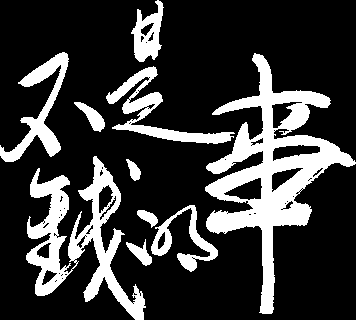 不是
錢的事